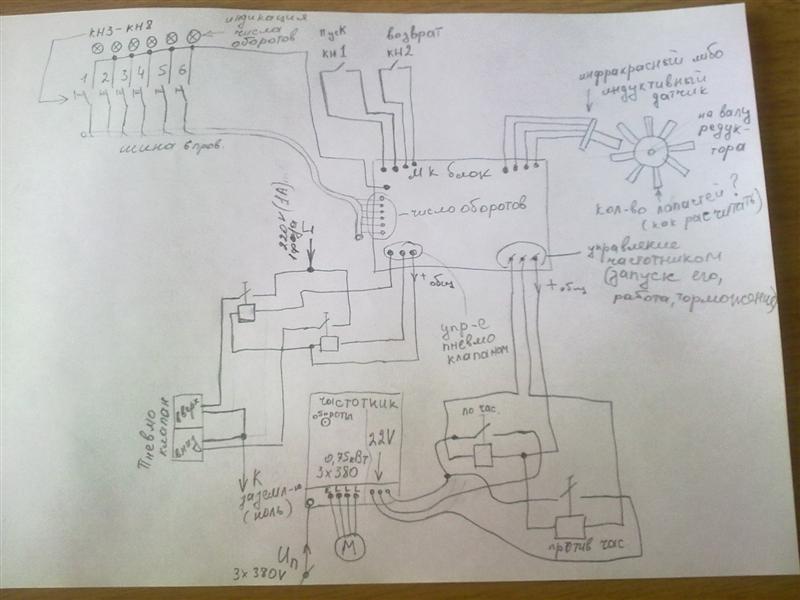 КН3-КН8
индикация
числа
оборотов
1 2 3 4 5 6
шина 8 пров.
пуск
КН1
возврат
КН2
инфракрасный либо
индуктивный
датчик
на валу
редук-
тора
кол-во лопастей?
(как расчитать)
МК блок
число оборотов
управление
частотником
(запуск его,
работа, торможение)
+ общ
+ общ
упр-е
пневмо
клапаном
220V (1А)
фаза
Пневмо
клапан
вверх
вниз
К
заземл-ю
(ноль)
частотник
обороты
22V
0,75кВт
3х380
М
Uп
3х380V
по час.
против час.